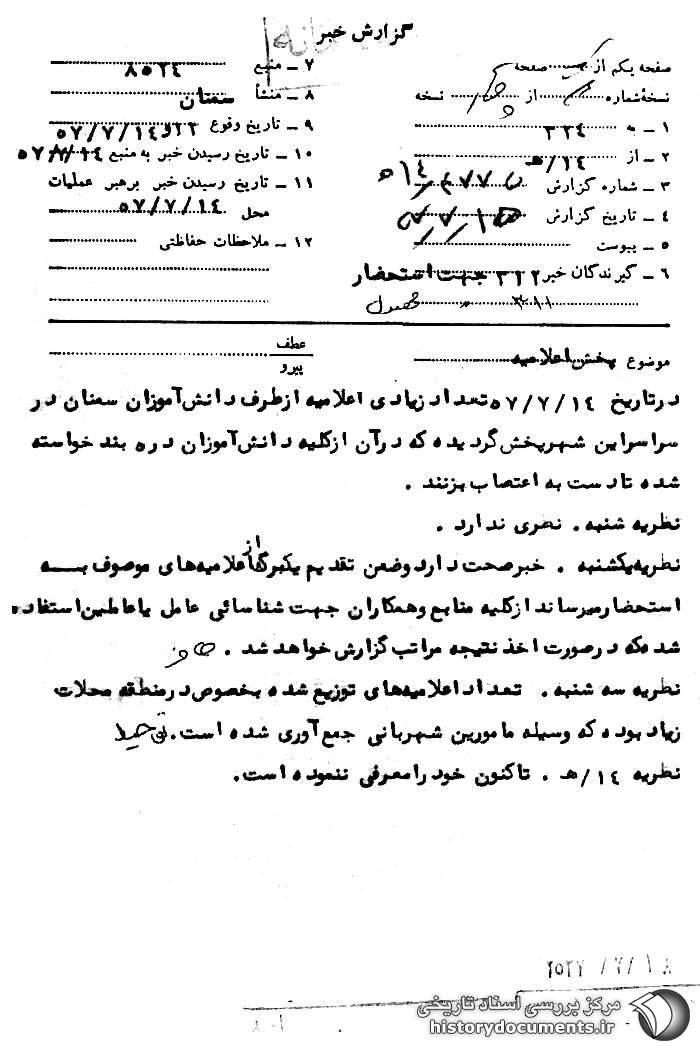 گزارش خبر
صفحه یکم از یک صفحه
نسخهٔ شماره از نسخه
۱ ـ به ۳۳۴
۲ ـ از ۱۴/هـ
۳ ـ شماره گزارش
۴ ـ تاریخ گزارش
۵ ـ پیوست
۶ ـ گیرندگان خبر ۳۲۲ جهت استحضار
۷ ـ منبع ۸۵۲۴
۸ ـ منشأ سمنان
۹ ـ تاریخ وقوع ۵۷/۷/۱۴
۱۰ ـ تاریخ رسیدن خبر به منبع ۵۷/۷/۱۴
۱۱ ـ تاریخ رسیدن خبر برهبر عملیات
محل ۵۷/۷/۱۴
۱۲ ـ ملاحظات حفاظتی
موضوع پخش اعلامیه
عطف
پیرو
درتاریخ ۵۷/۷/۱۴ تعداد زیادی اعلامیه ازطرف دانش‌آموزان سمنان در
سراسر این شهر پخش گردیده که در آن ازکلیه دانش‌آموزان دره بند خواسته
شده تا دست به اعتصاب بزنند .
نظریه شنبه . نظری ندارد .
نظریه یکشنبه . خبر صحت دارد وضمن تقدیم یکبرگ از اعلامیه‌های موصوف بــه
استحضار میرساند ازکلیه منابع وهمکاران جهت شناسائی عامل یا عاملین استفاده
شده که درصورت اخذ نتیجه مراتب گزارش خواهد شد .
نظریه سه شنبه . تعداد اعلامیه‌های توزیع شده بخصوص درمنطقه محلات
زیاد بوده که وسیله مامورین شهربانی جمع‌آوری شده است.
نظریه ۱۴/هـ . تاکنون خود را معرفی ننموده است.
۲۵۳۷/۷/۱۸
مرکز بررسی اسناد تاریخی
historydocuments.ir